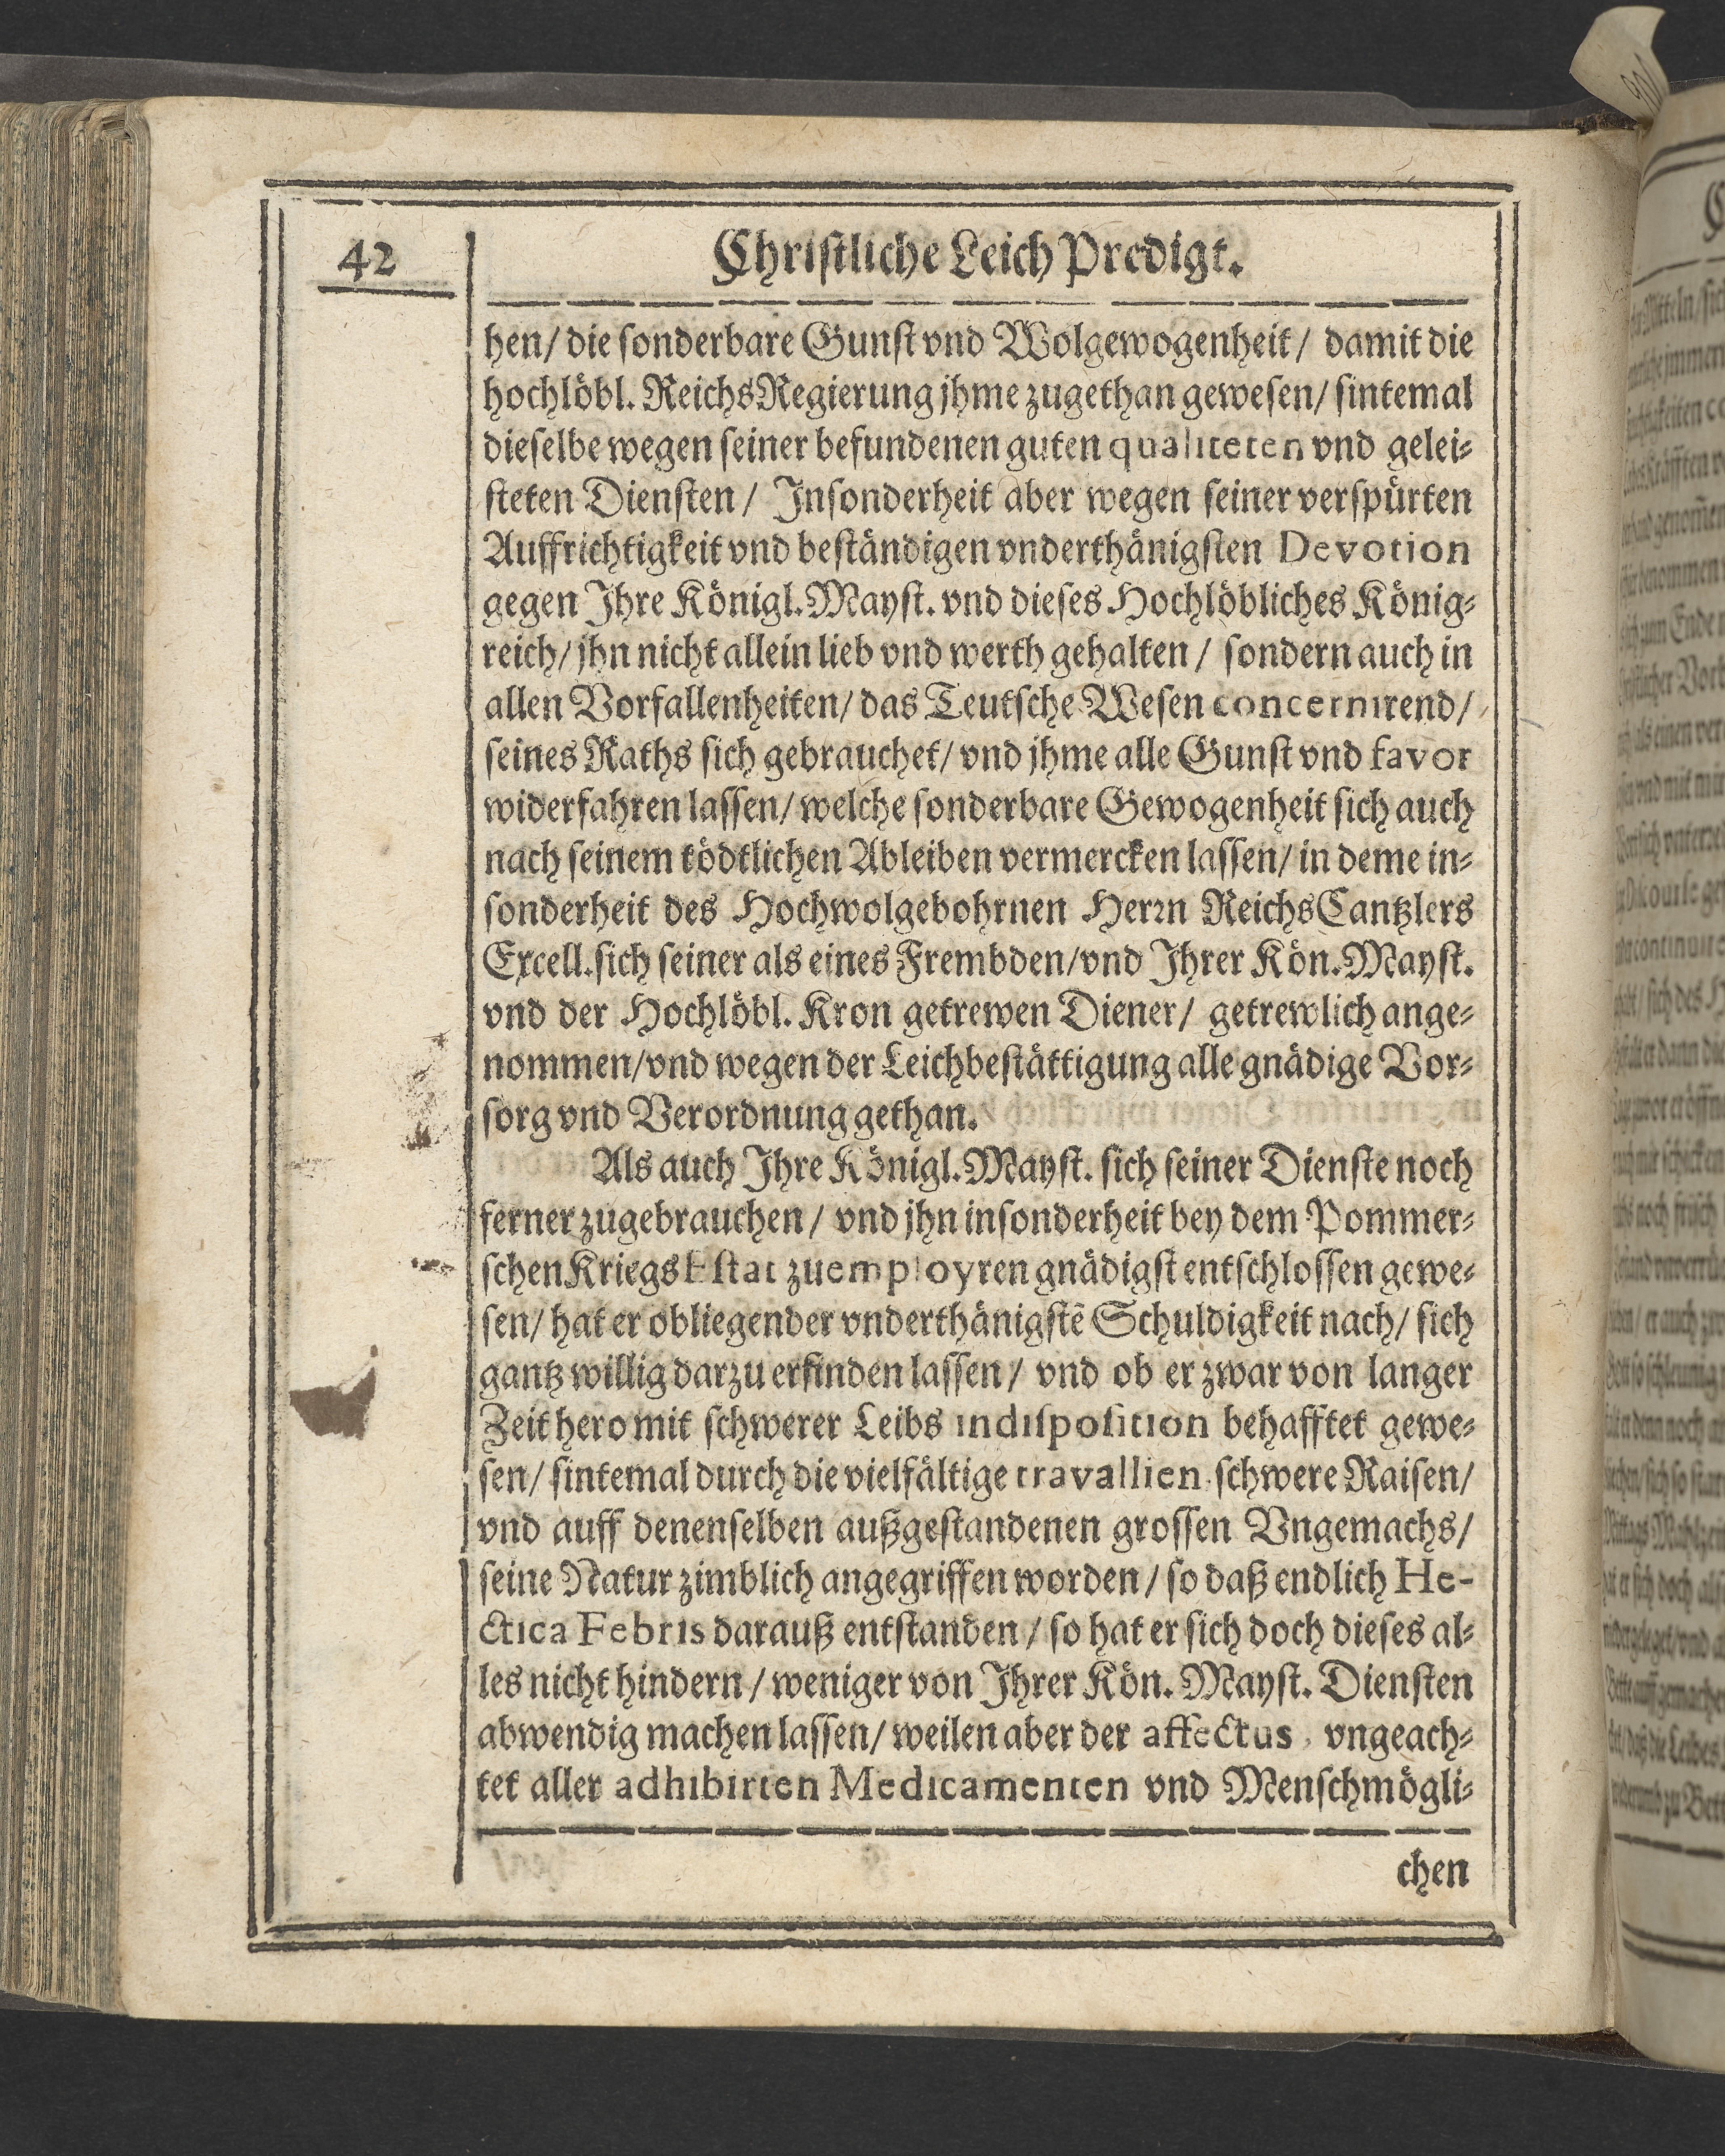 42
Christliche Leich Predigt.
hen/ die sonderbare Gunst vnd Wolgewogenheit/ damit die
hochlöbl. ReichsRegierung jhme zugethan gewesen/ sintemal
dieselbe wegen seiner befundenen guten qualiteten vnd gelei-
steten Diensten/ Insonderheit aber wegen seiner verspürten
Auffrichtigkeit vnd beständigen vnderthänigsten Devotion
gegen Ihre Königl. Mayst. vnd dieses Hochlöbliches König-
reich/ jhn nicht allein lieb vnd werth gehalten/ sondern auch in
allen Vorfallenheiten/ das Teutsche Wesen concernirend/
seines Raths sich gebrauchet/ vnd jhme alle Gunst vnd favor
widerfahren lassen/ welche sonderbare Gewogenheit sich auch
nach seinem tödtlichen Ableiben vermercken lassen/ in deme in-
sonderheit des Hochwolgebohrnen Herrn ReichsCantzlers
Excell. sich seiner als eines Frembden/ vnd Ihrer Kön. Mayst.
vnd der Hochlöbl. Kron getrewen Diener/ getrewlich ange-
nommen/ vnd wegen der Leichbestättigung alle gnädige Vor-
sorg vnd Verordnung gethan.
Als auch Ihre Königl. Mayst. sich seiner Dienste noch
ferner zugebrauchen/ vnd jhn insonderheit bey dem Pommer-
schen Kriegs Estat zu employren gnädigst entschlossen gewe-
sen/ hat er obliegender vnderthänigstē Schuldigkeit nach/ sich
gantz willig darzu erfinden lassen/ vnd ob er zwar von langer
Zeit hero mit schwerer Leibs indisposition behafftet gewe-
sen/ sintemal durch die vielfältige travallien schwere Raisen/
vnd auff denenselben außgestandenen grossen Vngemachs/
seine Natur zimblich angegriffen worden/ so daß endlich He-
ctica Febris darauß entstanden/ so hat er sich doch dieses al-
les nicht hindern/ weniger von Ihrer Kön. Mayst. Diensten
abwendig machen lassen/ weilen aber der affectus, vngeach-
tet aller adhibirten Medicamenten vnd Menschmögli-
chen